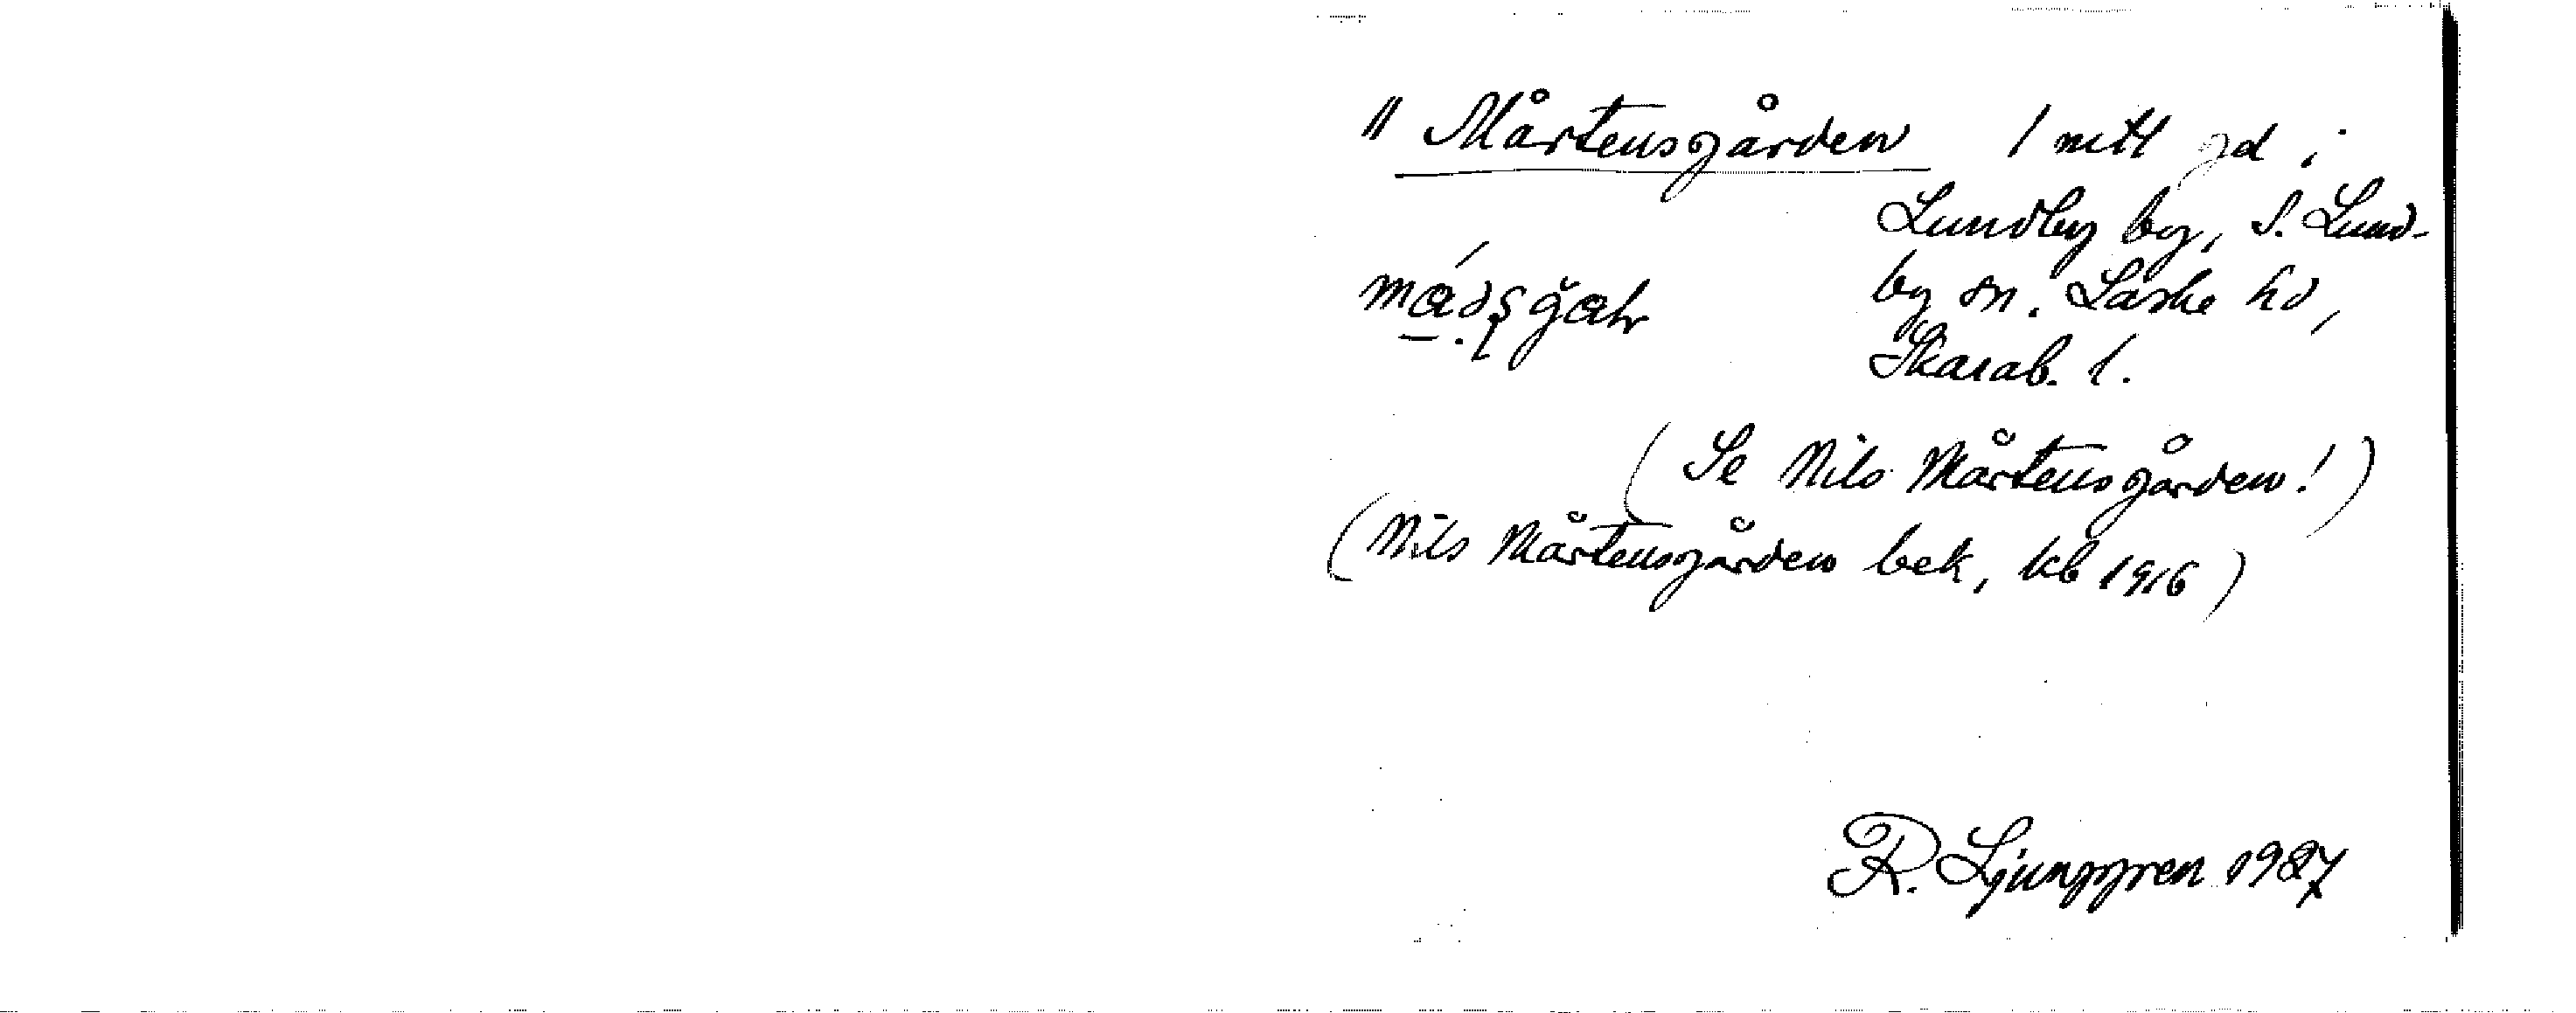 " Mårtensgården 1 mtl gd i
Lundby by, S. Lund-
by sn. Laske hd,
Skarab. l.
(Se Nils Mårtensgården!)
(Nils Mårtensgården bek, kb 1916)
R. Ljunggren 1927